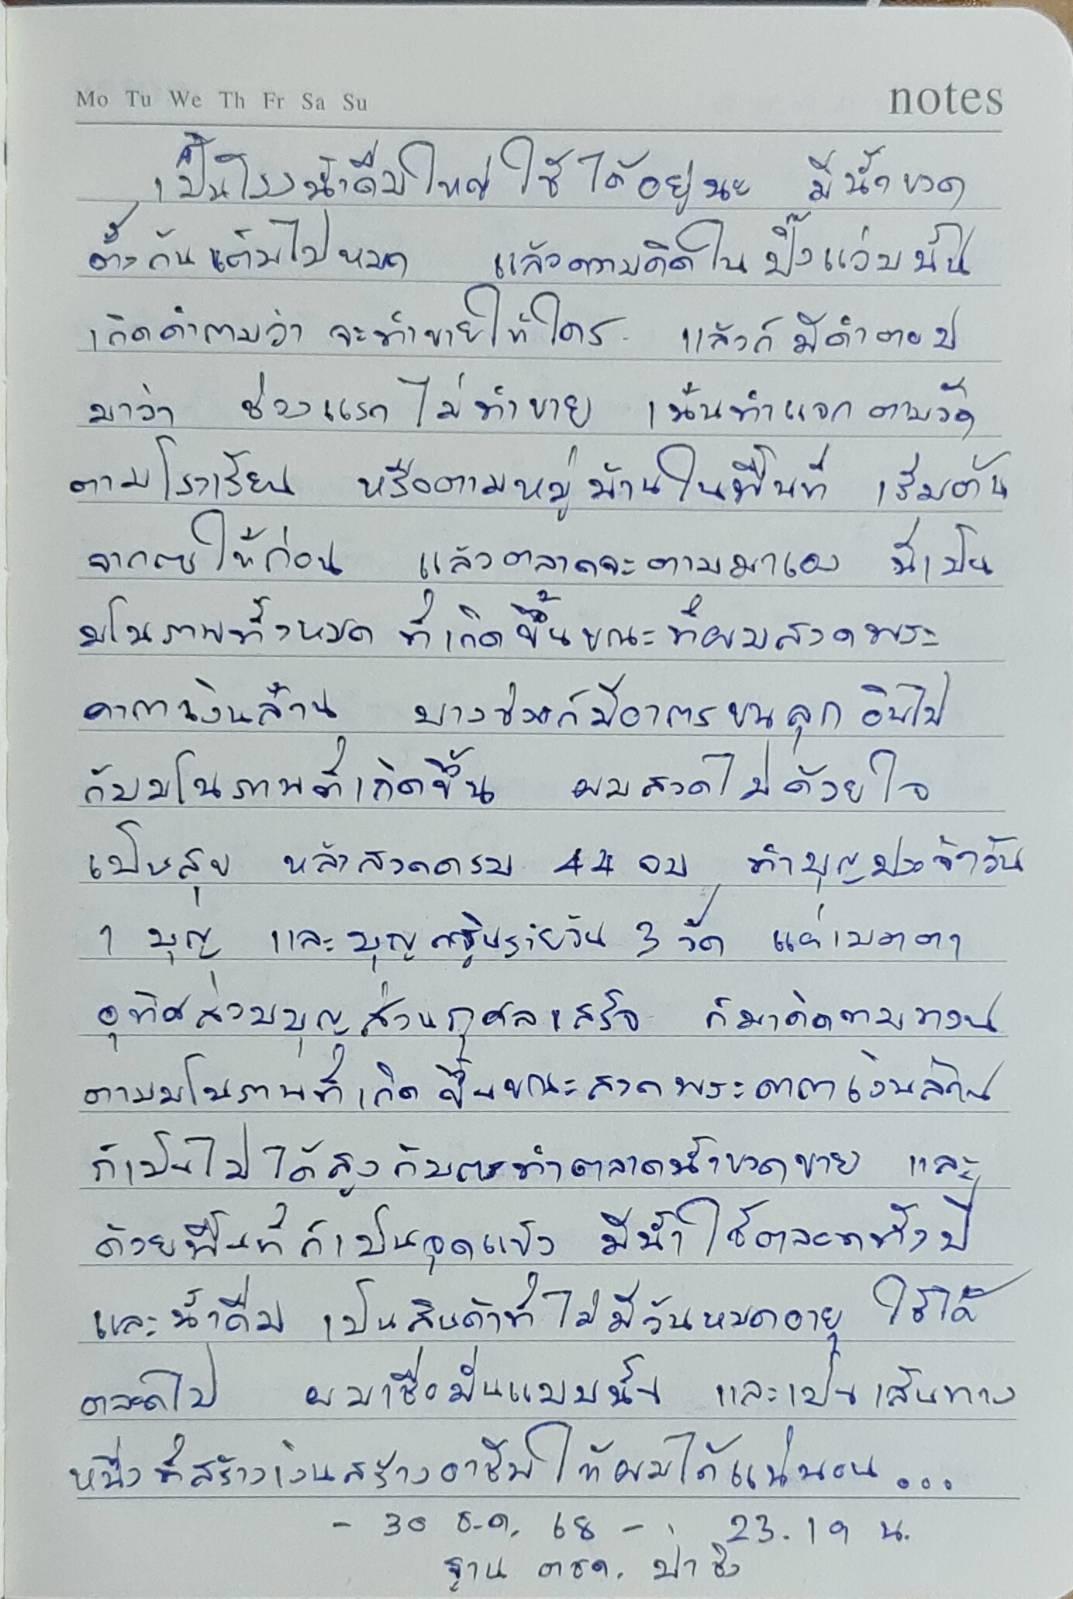 Mo Tu We Th Fr Sa Su
notes
เป็นโรงน้ำดื่มใหญ่ ใช้ได้อยู่นะ มีน้ำขวด
ตั้งกันเต็มไปหมด แล้วความคิดในปิ๊งแว่บนั้น
เกิดคำถามว่า จะทำขายให้ใคร. แล้วก็มีคำตอบ
มาว่า ช่วงแรกไม่ทำขาย เน้นทำแจกตามวัด
ตามโรงเรียน หรือตามหมู่บ้านในพื้นที่ เริ่มต้น
จากการให้ก่อน แล้วตลาดจะตามมาเอง นี่เป็น
มโนภาพทั้งหมด ที่เกิดขึ้นขณะที่ผมสวดพระ
คาถาเงินล้าน บางช่วงก็มีอาการขนลุก อินไป
กับมโนภาพที่เกิดขึ้น ผมสวดไปด้วยใจ
เป็นสุข หลังสวดครบ 44 จบ ทำบุญประจำวัน
1 บุญ และบุญกฐินรายวัน 3 วัด แผ่เมตตา
อุทิศส่วนบุญส่วนกุศลเสร็จ ก็มาคิดทบทวน
ตามมโนภาพที่เกิดขึ้นขณะสวดพระคาถาเงินล้าน
ก็เป็นไปได้สูงกับการทำตลาดน้ำขวดขาย และ
ด้วยพื้นที่ก็เป็นจุดแข็ง มีน้ำใช้ตลอดทั้งปี
และน้ำดื่ม เป็นสินค้าที่ไม่มีวันหมดอายุ ใช้ได้
ตลอดไป ผมเชื่อมั่นแบบนั้น และเป็นเส้นทาง
หนึ่งที่สร้างเงินสร้างอาชีพให้ผมได้แน่นอน...
- 30 ธ.ค. 68 - 23.19 น.
ฐาน ตชด. ป่าซิง